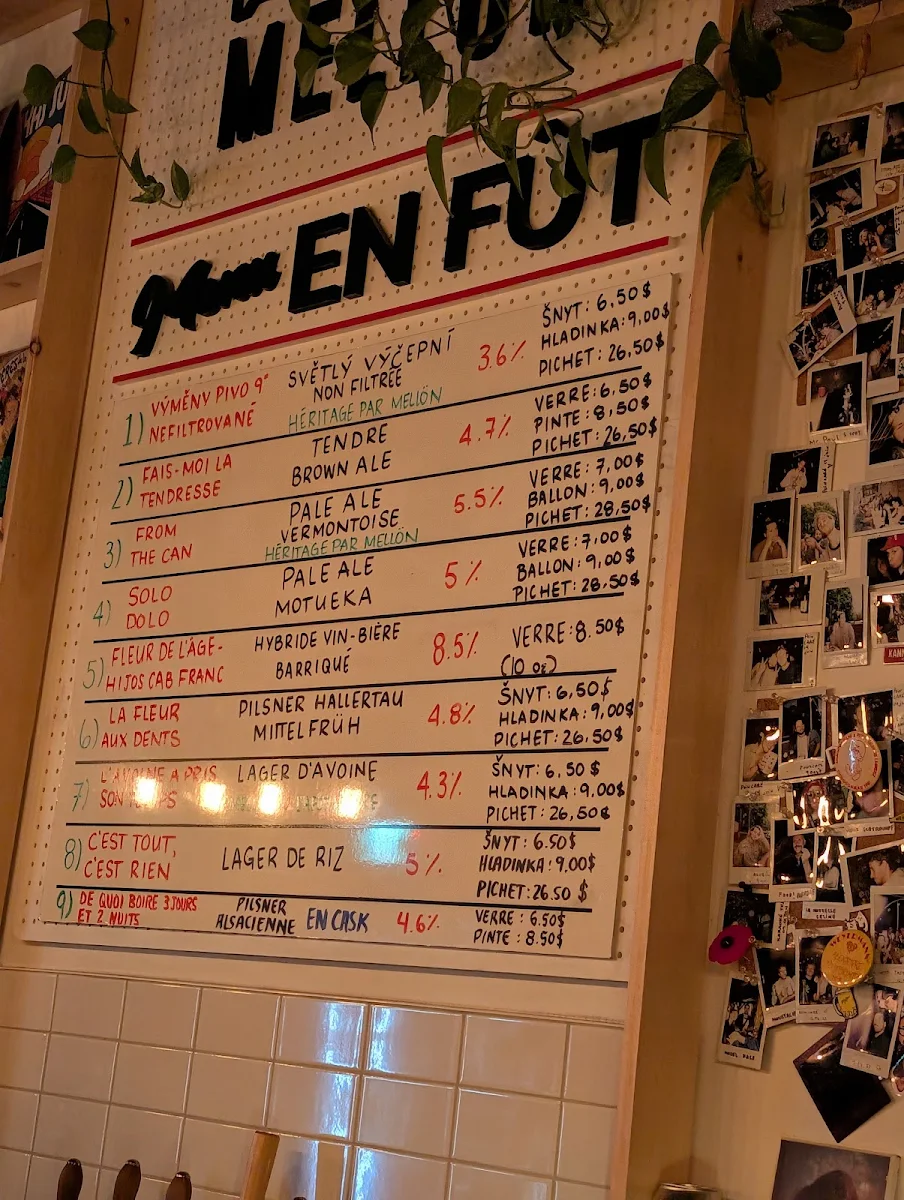 MELLÖN
Menu EN FÛT
1) VÝMĚNY PIVO 9°
NEFILTROVANÉ
SVĚTLÝ VÝČEPNÍ
NON FILTRÉE
HÉRITAGE PAR MELLÖN
3.6%
ŠNYT: 6,50$
HLADINKA: 9,00$
PICHET: 26,50$
2) FAIS-MOI LA
TENDRESSE
TENDRE
BROWN ALE
4.7%
VERRE: 6,50$
PINTE: 8,50$
PICHET: 26,50$
3) FROM
THE CAN
PALE ALE
VERMONTOISE
HÉRITAGE PAR MELLÖN
5.5%
VERRE: 7,00$
BALLON: 9,00$
PICHET: 28,50$
4) SOLO
DOLO
PALE ALE
MOTUEKA
5%
VERRE: 7,00$
BALLON: 9,00$
PICHET: 28,50$
5) FLEUR DE L'ÂGE-
HIJOS CAB FRANC
HYBRIDE VIN-BIÈRE
BARRIQUÉ
8.5%
VERRE: 8.50$
(10 oz)
6) LA FLEUR
AUX DENTS
PILSNER HALLERTAU
MITTELFRÜH
4.8%
ŠNYT: 6,50$
HLADINKA: 9,00$
PICHET: 26,50$
7) L'AVOINE A PRIS
SON TEMPS
LAGER D'AVOINE
4.3%
ŠNYT: 6,50$
HLADINKA: 9,00$
PICHET: 26,50$
8) C'EST TOUT,
C'EST RIEN
LAGER DE RIZ
5%
ŠNYT: 6.50$
HLADINKA: 9,00$
PICHET: 26.50 $
9) DE QUOI BOIRE 3 JOURS
ET 2 NUITS
PILSNER
ALSACIENNE EN CASK
4.6%
VERRE: 6.50$
PINTE: 8.50$